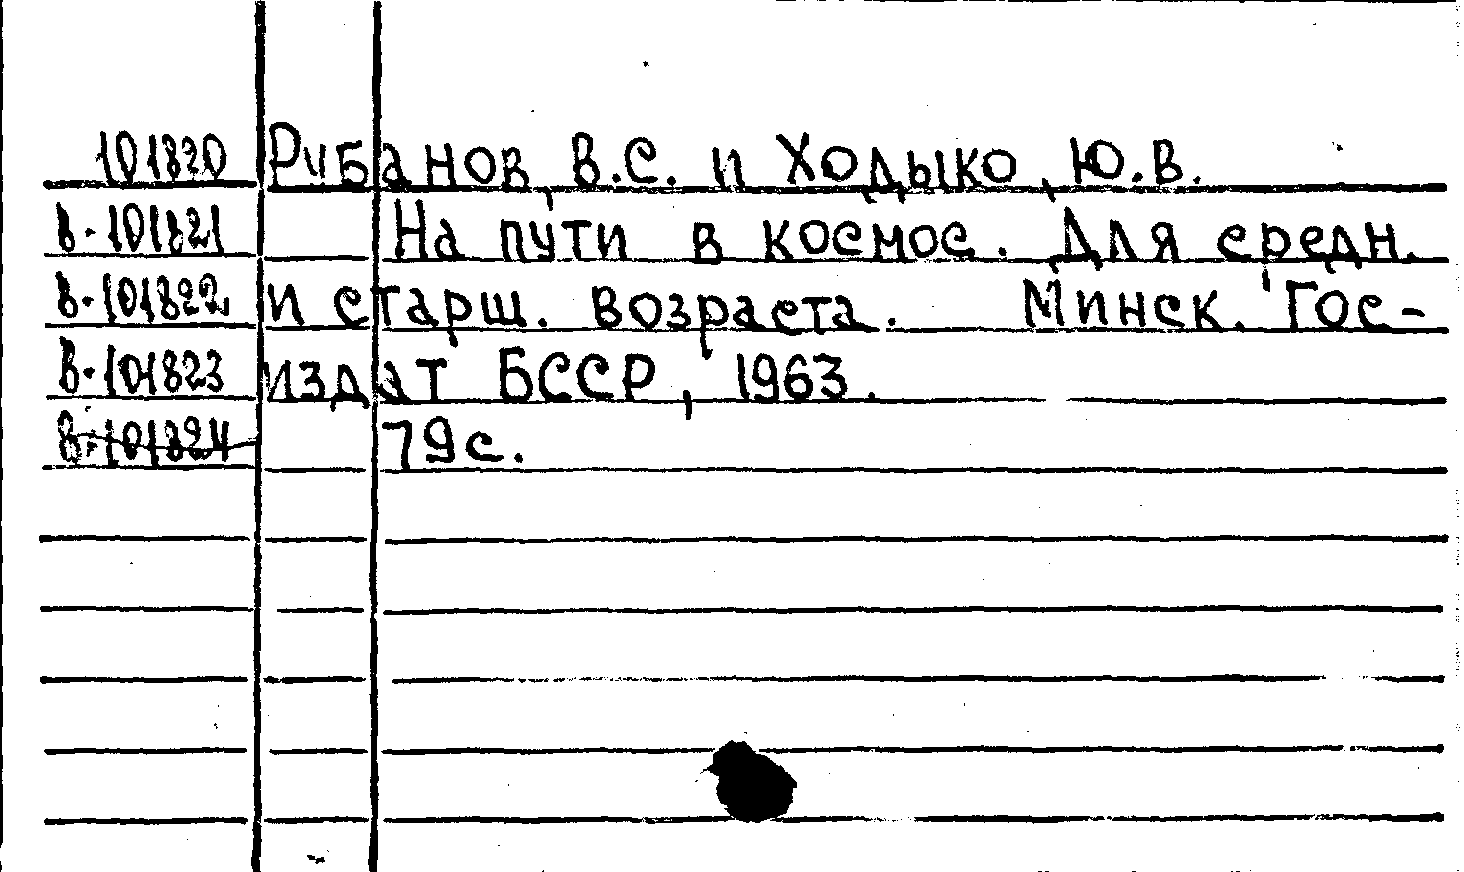 101820 Рубанов, В.С. и Ходыко, Ю.В.
в-101821 На пути в космос. Для средн.
в-101822 и старш. возраста. Минск. Гос-
в-101823 издат БССР, 1963.
в-101824 79с.